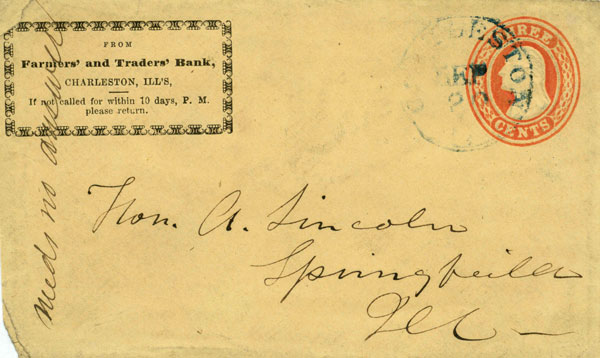 FROM
Farmers' and Traders' Bank,
CHARLESTON, ILL'S,
If not called for within 10 days, P. M.
please return.
THREE
CENTS
SEP
needs no answer
Hon. A. Lincoln
Springfield
Ill